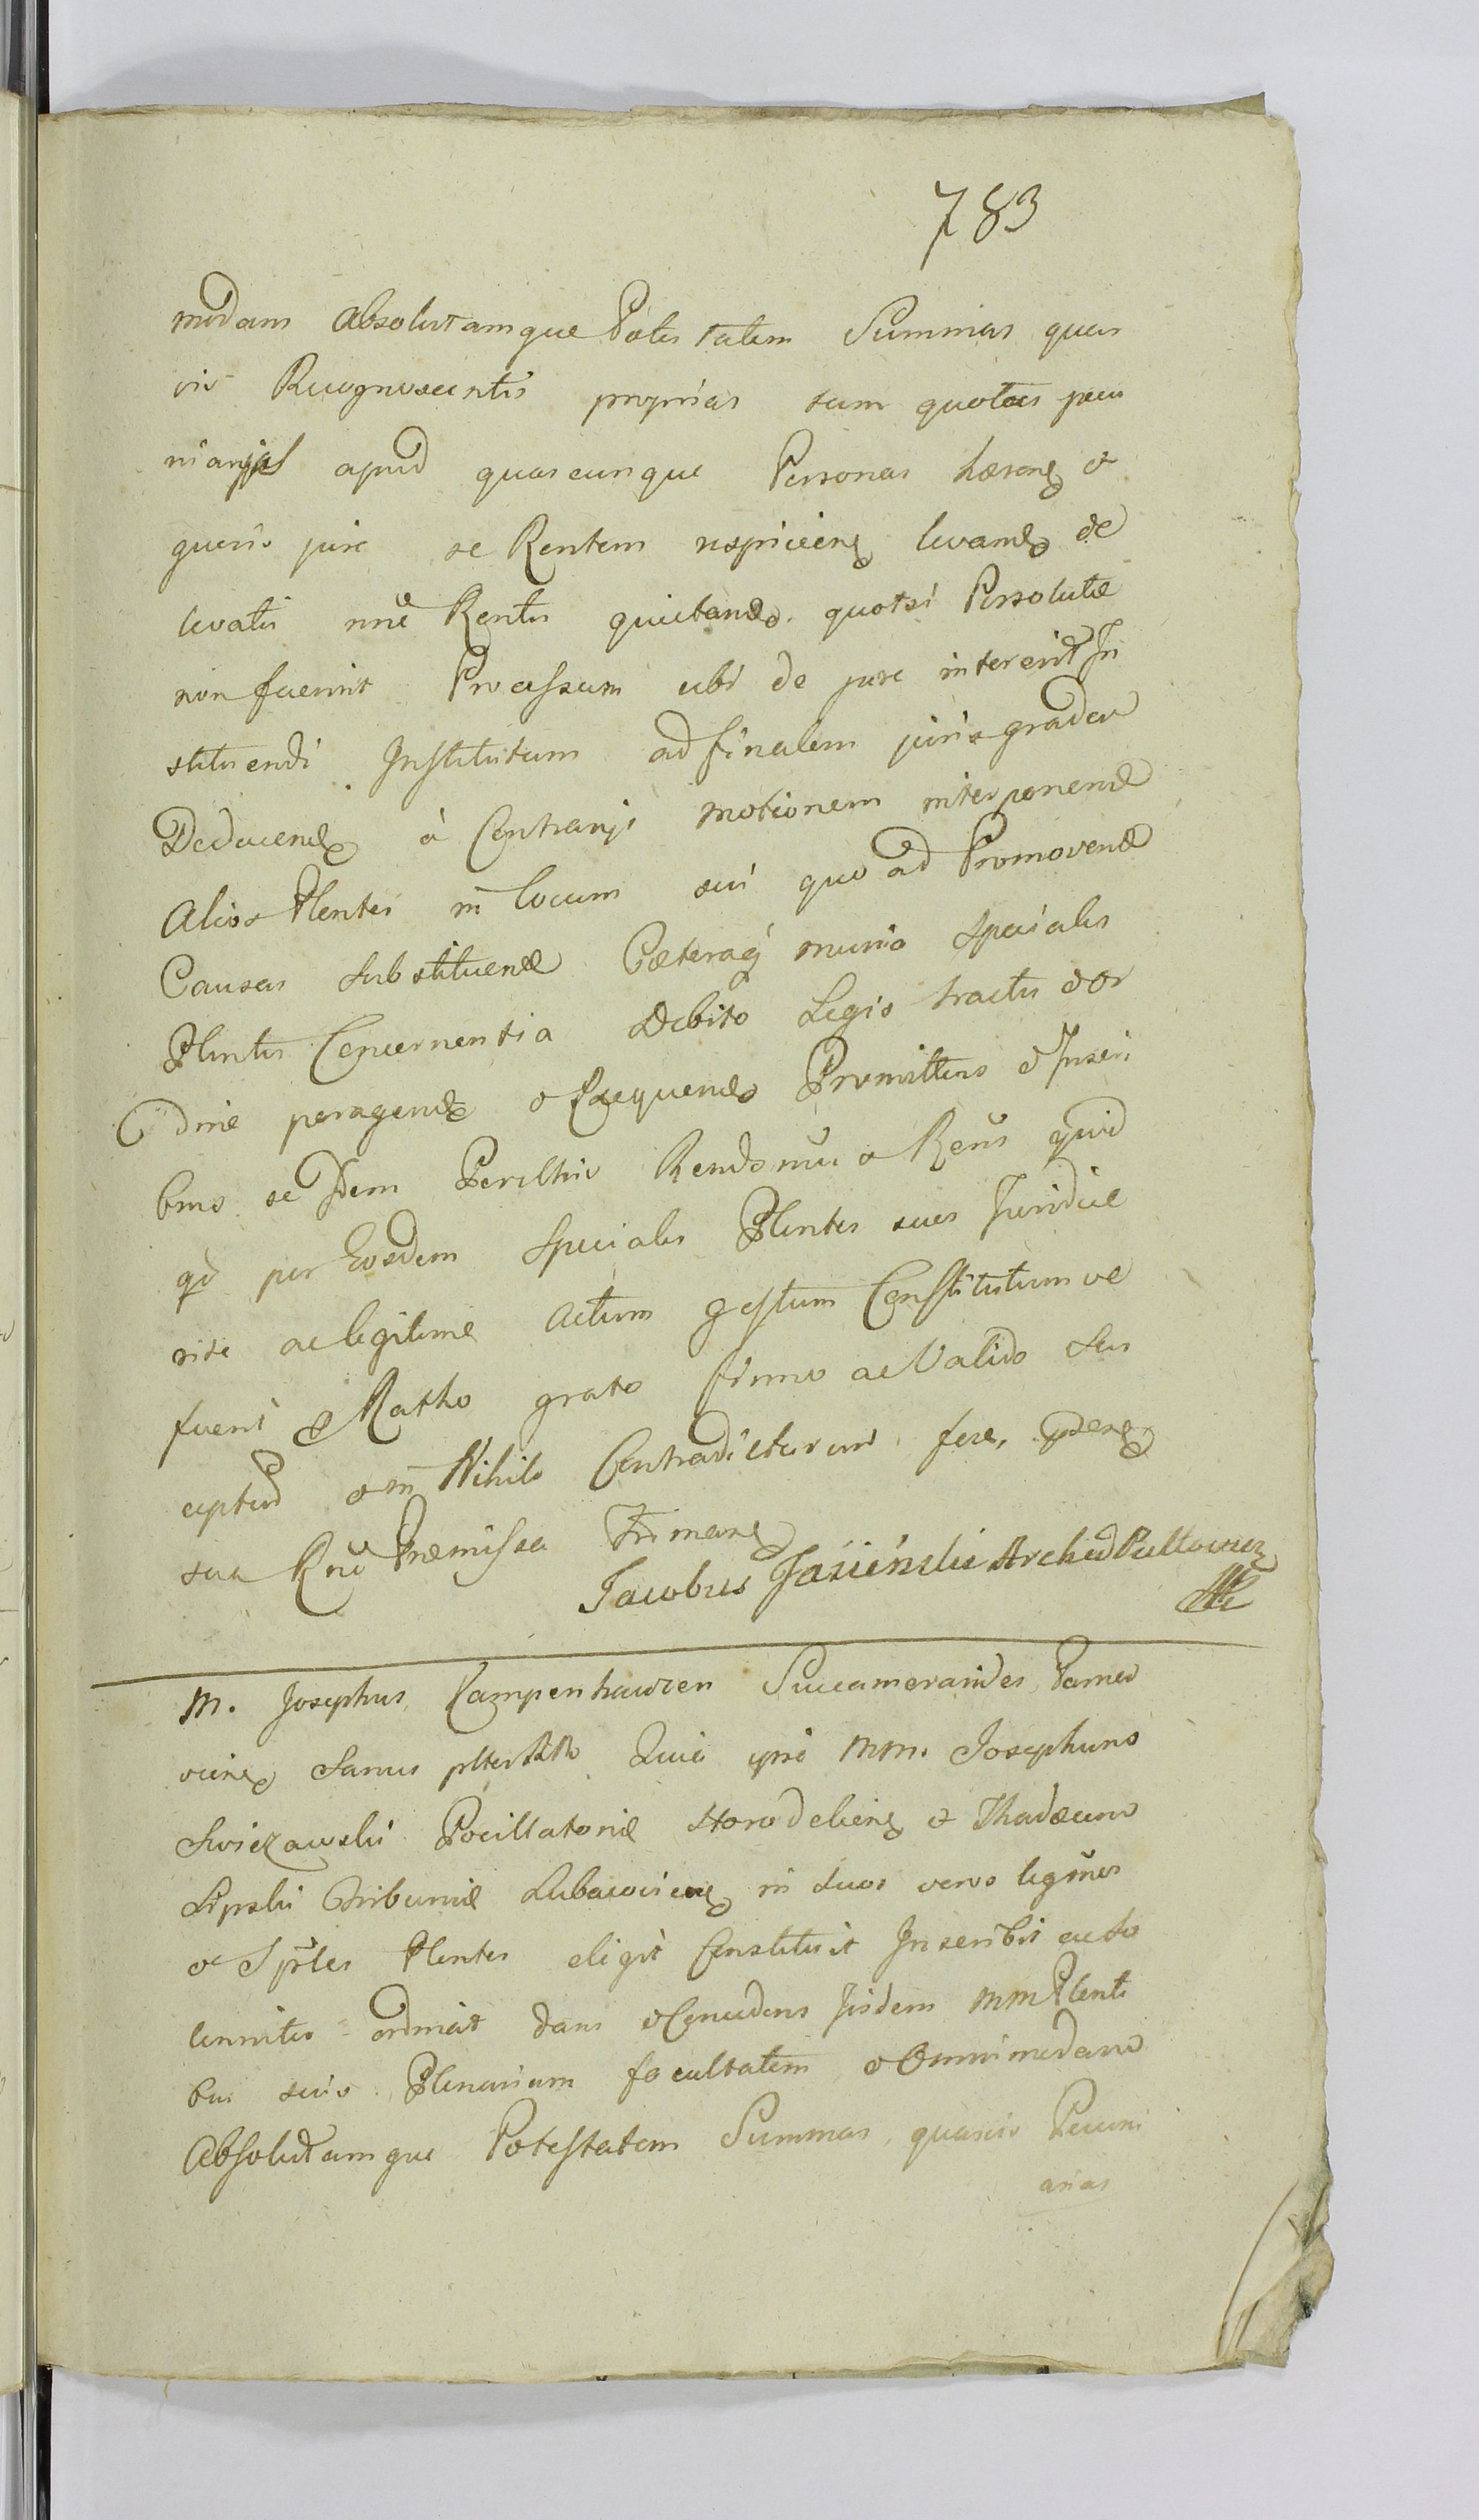 783
modam Absolutamque Potestatem Summas quas
vis Recognoscentis proprias tum quotas pecu
niarias apud quascunque Personas hæren et
quovis jure se Rentem respicien levand de
levatis nne Rentis quietand quotsi Persolutæ
non fuerint Processum ubi de jure intererit In
stituendi Institutum ad finalem juris gradum
Deducend à Contrarys motionem interponend
Alios Plentes in locum sui quo ad Promovend
Causas substituend Cæteraq munia Speciales
Plentes Concernentia Debito Legis tractu et or
dine peragend et Exequend Promittens et Inseri
bens se Idem Perillris Rendsmus Rens quid
qd per Eosdem Speciales Plentes suos Juridice
rite ac legitime Actum gestum Constitutumve
fuerit Ratho grato firmo ac Valido sus
cepturum et in Nihilo Contradicturum fore, pden
sua Rne Præmissa Firmans
Jacobus Jasieński Archid Pultovien
M. Josephus Campenhauzen Succamerarides Parna
vien Sanus Quia ipse MM. Josephum
Swiezawski Pocillatorid Horodelien et Thadæum
Lipski Tribunid Lubaczovien in suos veros legmos
et Sples Plentes eligit Constituit Inscribit ac so
lenniter ordinat dans et Concedens Iisdem MM Plenti
bus suis Plenariam facultatem et Omnimodam
Absolutamque Potestatem Summas quasvis Pecuni
arias